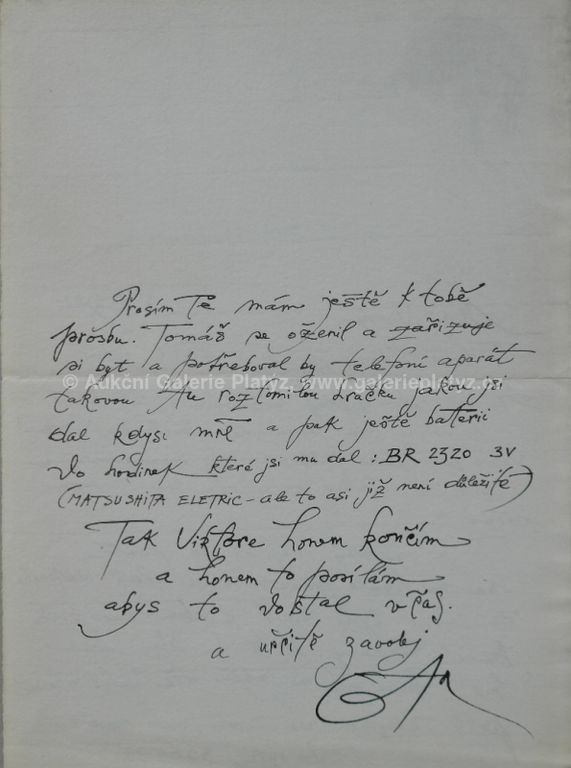 Prosím Tě mám ještě k tobě
prosbu. Tomáš se oženil a zařizuje
si byt a potřeboval by telefoní aparát
© Aukční Galerie Platýz, www.galerieplatyz.cz
takovou tu roztomilou hračku jakou jsi
dal kdysi mně a pak ještě baterii
do hodinek které jsi mu dal: BR 2320 3V
(MATSUSHITA ELETRIC - ale to asi již není důležité)
Tak Viktore honem končím
a honem to posílám
abys to dostal včas.
a určitě zavolej